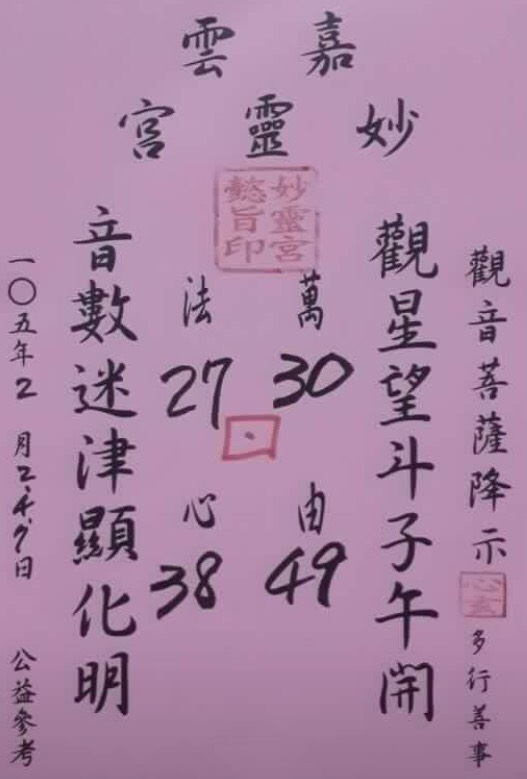 嘉雲
妙靈宮
妙靈宮
懿旨印
觀音菩薩降示
心玄
多行善事
觀星望斗子午開
萬 法
30 27
由 心
49 38
音數迷津顯化明
一〇五年2月2.4.9日
公益參考